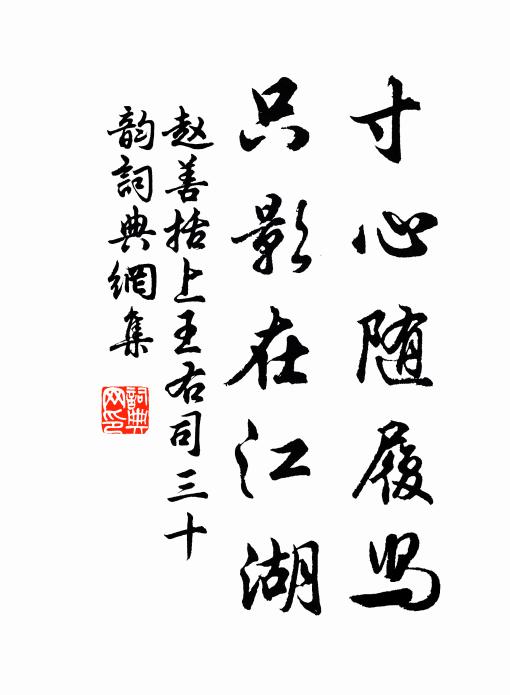 寸心随履舄
只影在江湖
赵善括上王右司三十
韵詞典網集
詞典
网印